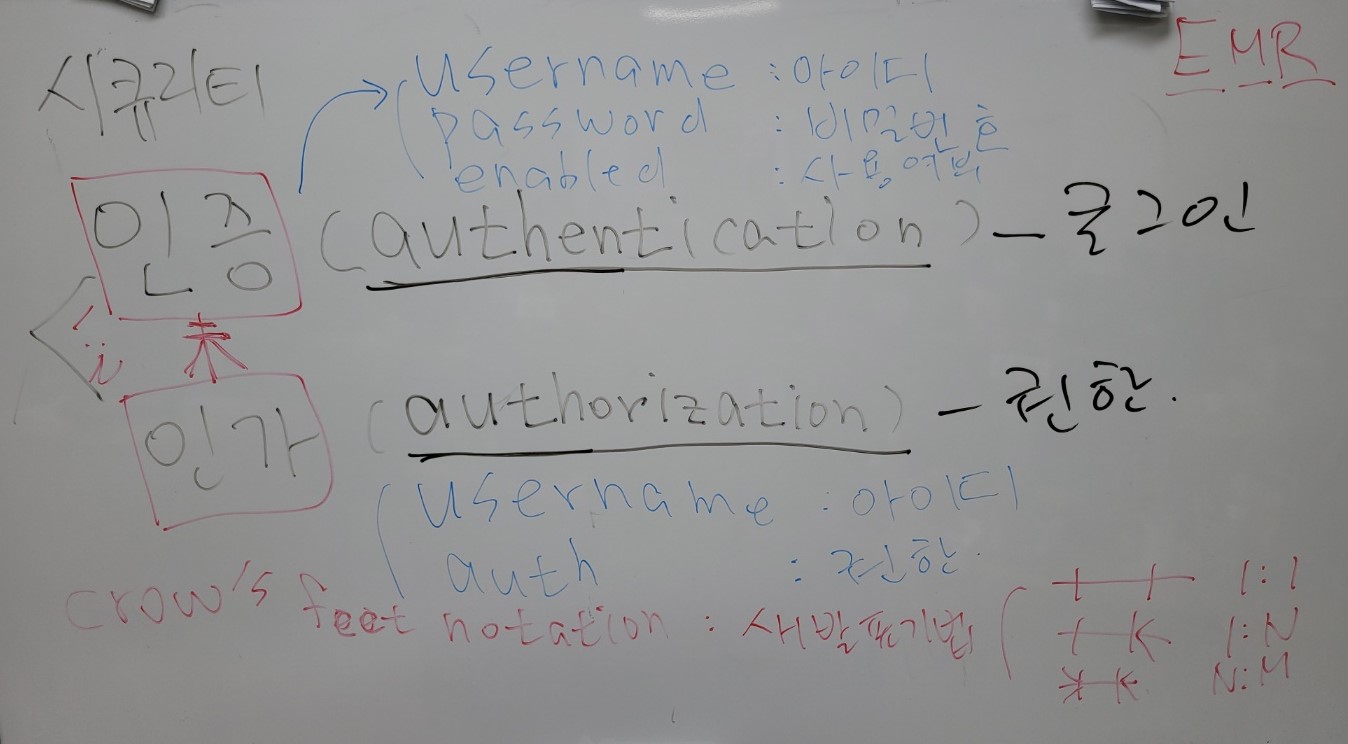 시큐리티
EMR
username : 아이디
password : 비밀번호
enabled : 사용여부
인증 (authentication) - 로그인
1
인가 (authorization) - 권한.
username : 아이디
auth : 권한.
crow's feet notation : 새발표기법
1:1
1:N
N:M